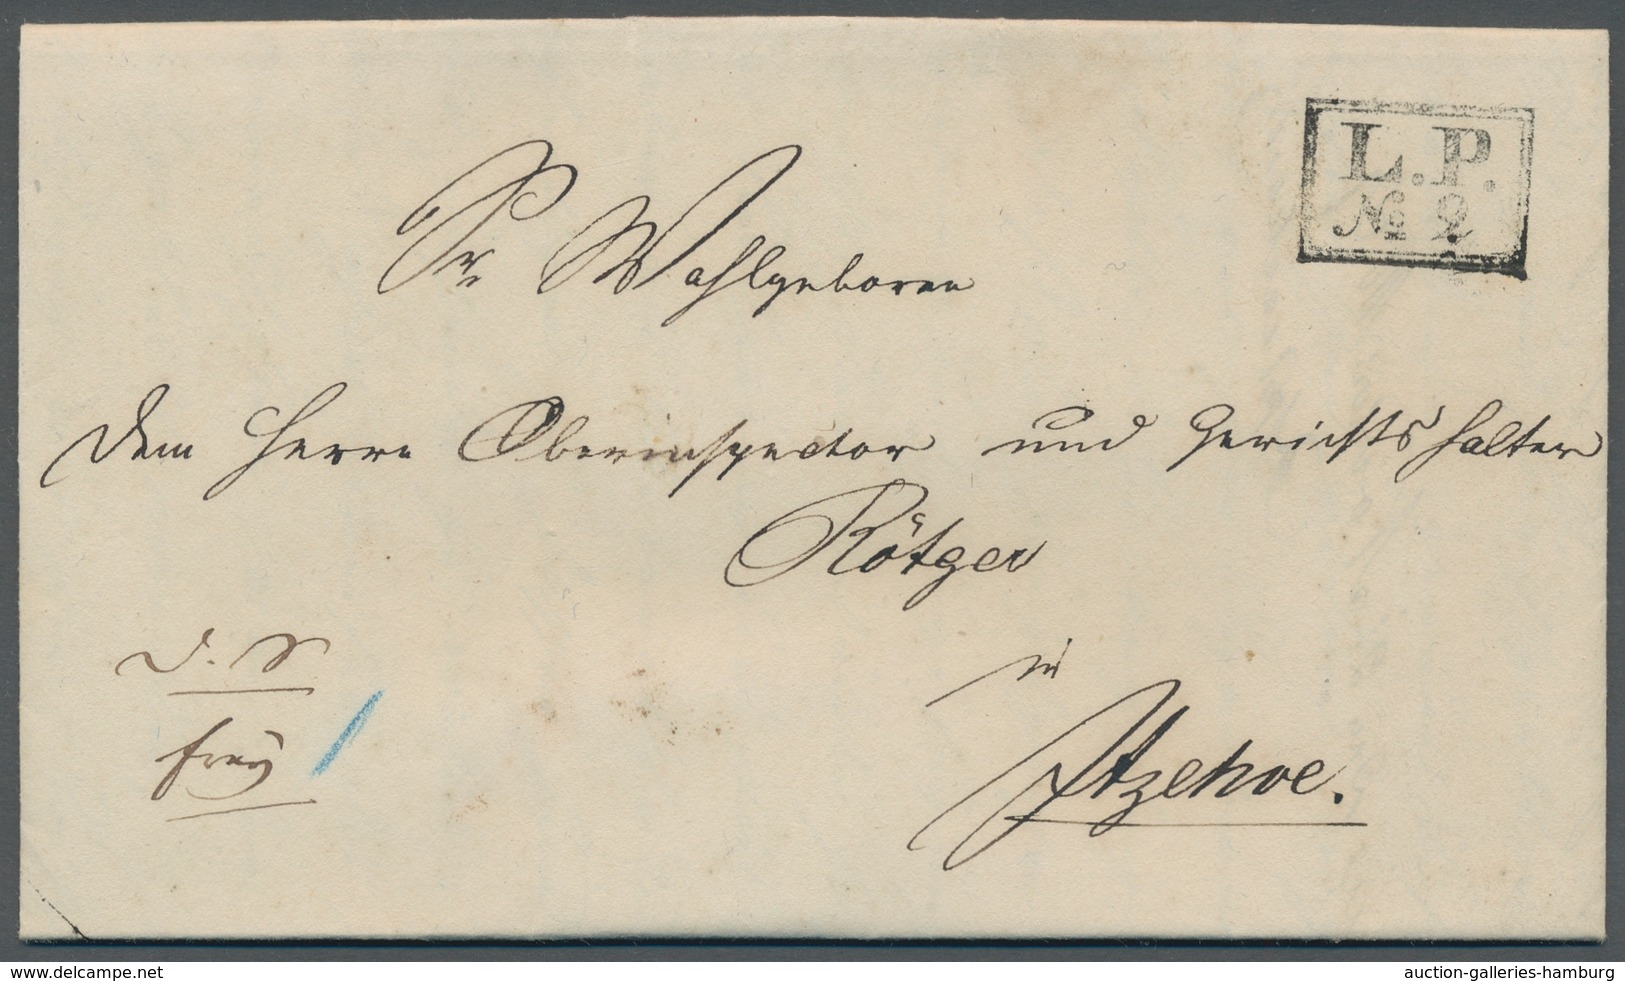 L. P.
№ 2
Sr Wohlgeboren
dem Herrn Oberinspector und Gerichtshalter
Rötger
in
frey
Itzehoe.
www.delcampe.net
auction-galleries-hamburg